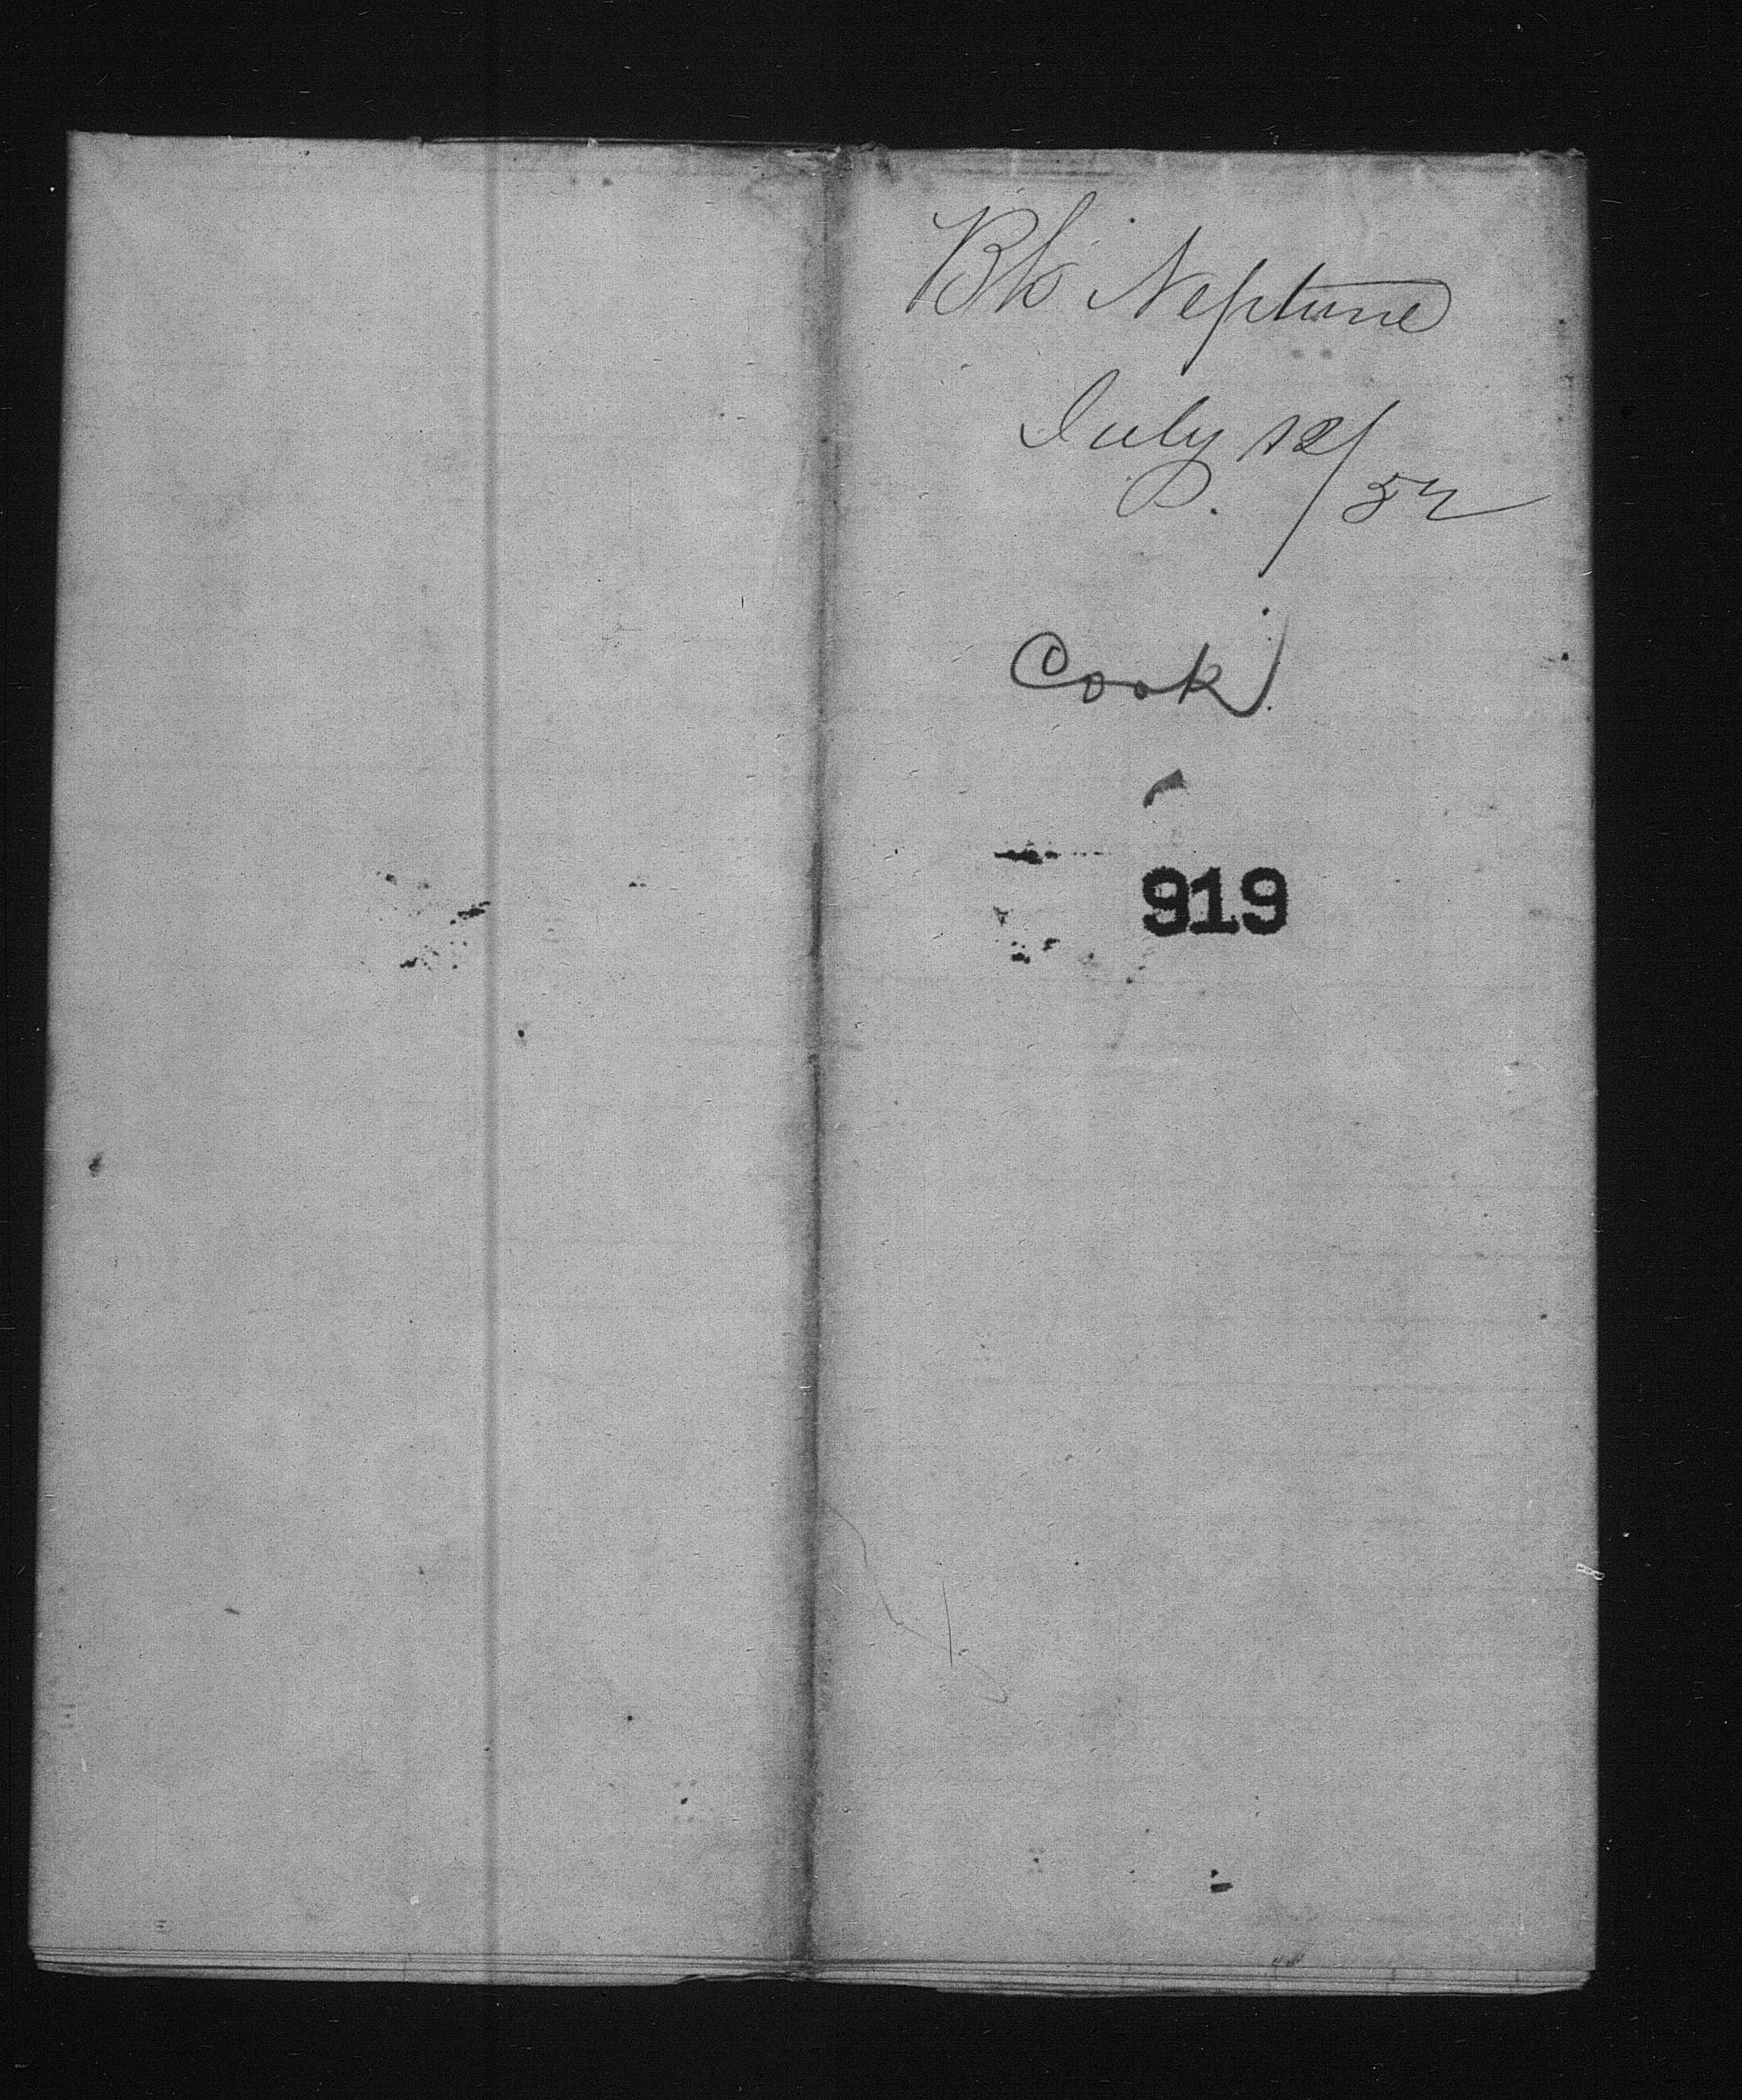 Bk Neptune
July 12/52
Cook
919